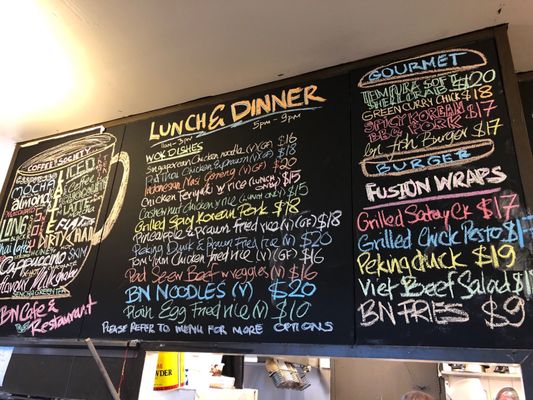 COFFEE SOCIETY
MOCHA
LONG
LATTE
ICED
Cappuccino
Flavour Milkshake
BN Cafe &
Restaurant
LUNCH & DINNER
11am - 3pm
5pm - 9pm
WOK DISHES
Singaporean Chicken noodle (V) $16
Red Thai Chicken & prawn (V) GF $18
Indonesian Nasi Goreng (V) GF $20
Chicken Periyaki w rice (LUNCH ONLY) $15
Cashew nut Chicken w rice (Lunch Only) $15
Grilled Spicy Korean Pork $18
Pineapple & Prawn Fried rice (V)(GF) $18
Peking Duck & prawn Fried rice (V) $20
Tom Yam Chicken Fried rice (V)(GF) $16
Pad Seew Beef w veggies (V) $16
BN NOODLES (V) $20
Plain Egg Fried rice $10
PLEASE REFER TO MENU FOR MORE OPTIONS
GOURMET
TEMPURA SOFT $20
SHELL CRAB
GREEN CURRY CHICK $18
SPICY KOREAN $17
BBQ PORK
Fish Burger $17
BURGER
FUSION WRAPS
Grilled Satay Ck $17
Grilled Chick Pesto $17
Peking duck $19
Viet Beef Salad $
BN FRIES $9